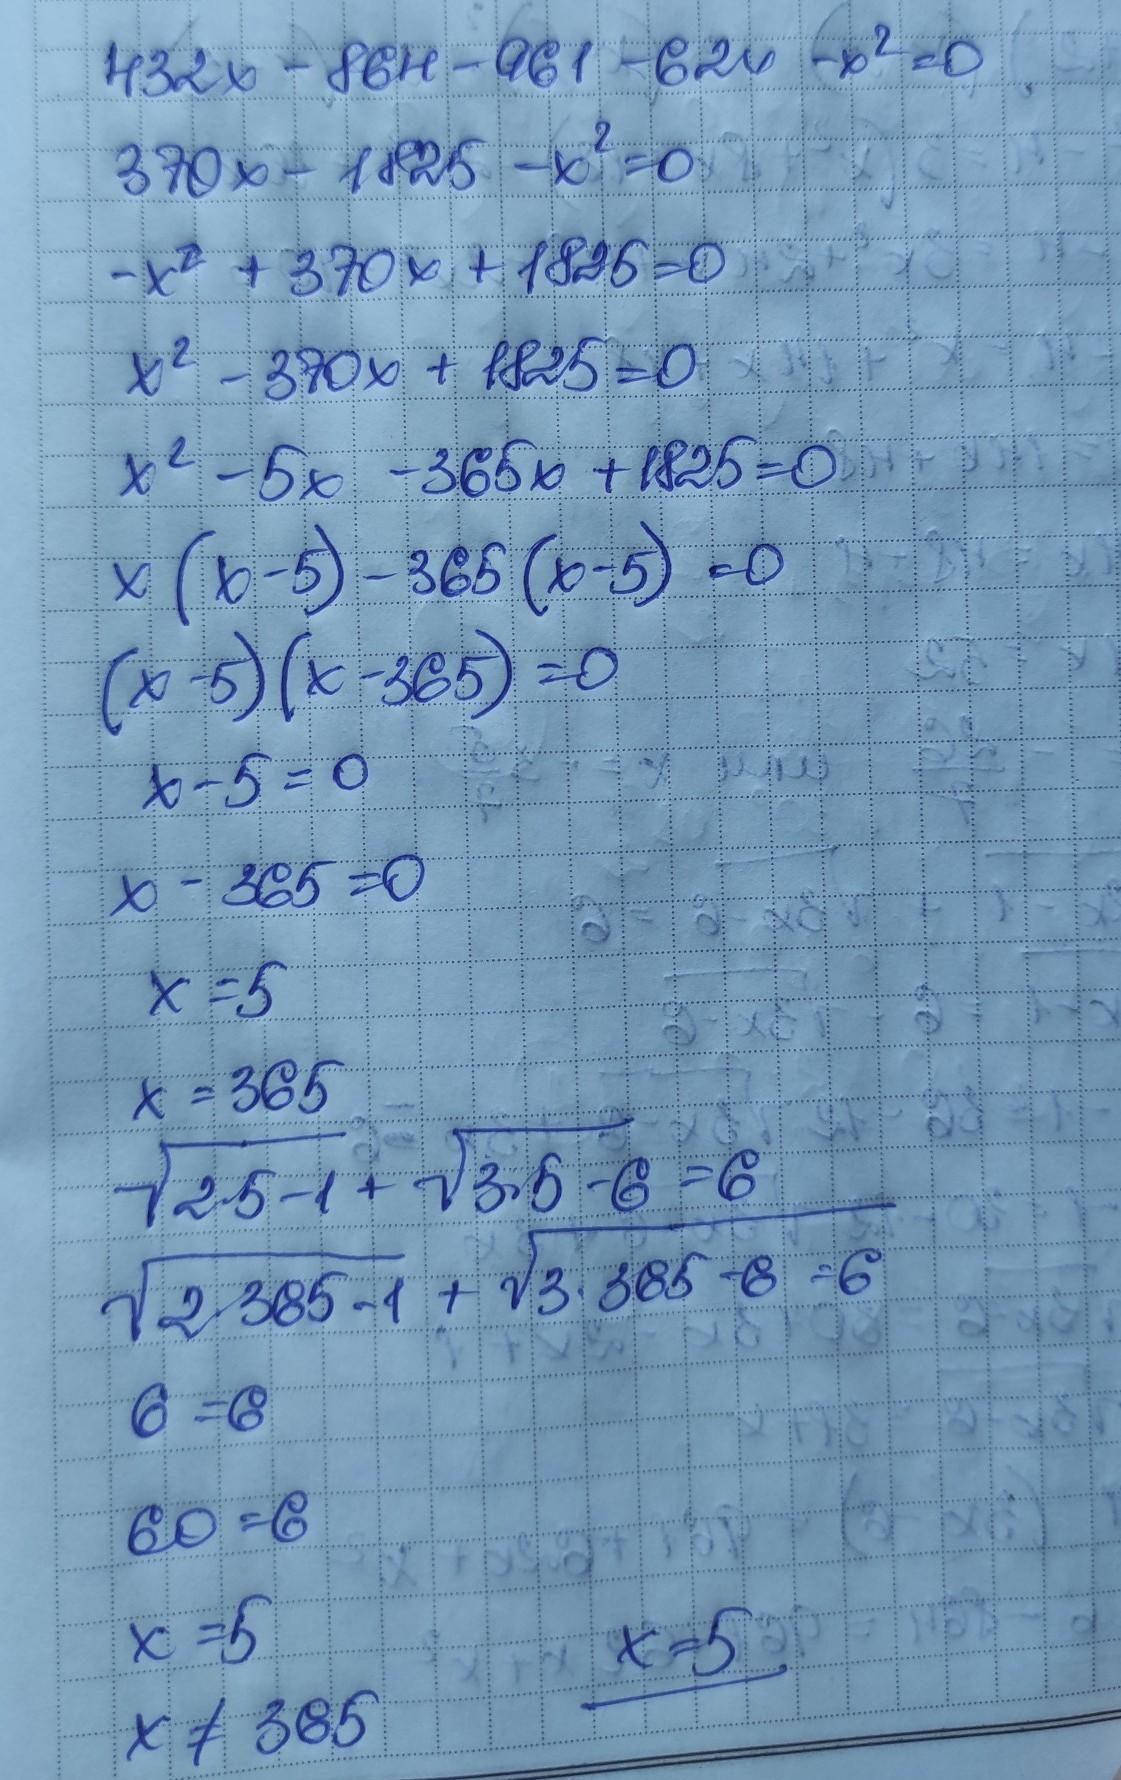 432x - 864 - 961 - 62x - x² = 0
370x - 1825 - x² = 0
-x² + 370x + 1825 = 0
x² - 370x + 1825 = 0
x² - 5x - 365x + 1825 = 0
x (x - 5) - 365 (x - 5) = 0
(x - 5) (x - 365) = 0
x - 5 = 0
x - 365 = 0
x = 5
x = 365
√2·5 - 1 + √3·5 - 6 = 6
√2·365 - 1 + √3·365 - 6 = 6
6 = 6
60 = 6
x = 5
x = 5
x ≠ 365